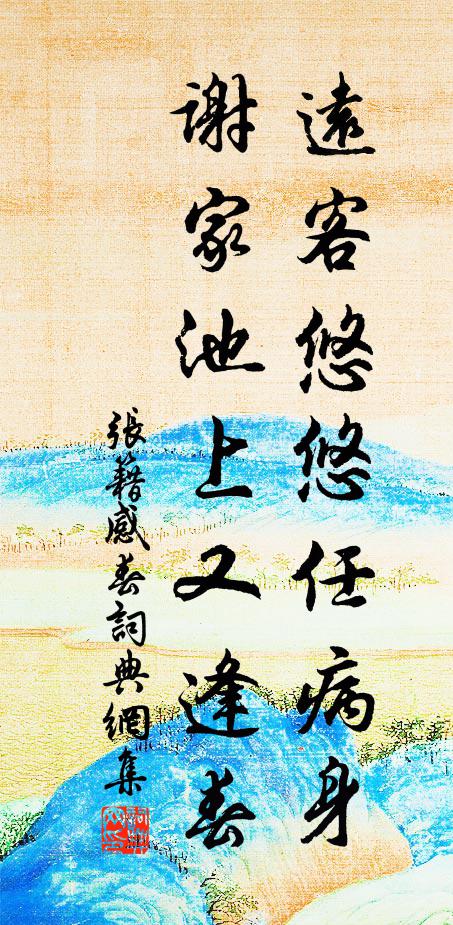 遠客悠悠任病身
謝家池上又逢春
張籍感春詞典網集